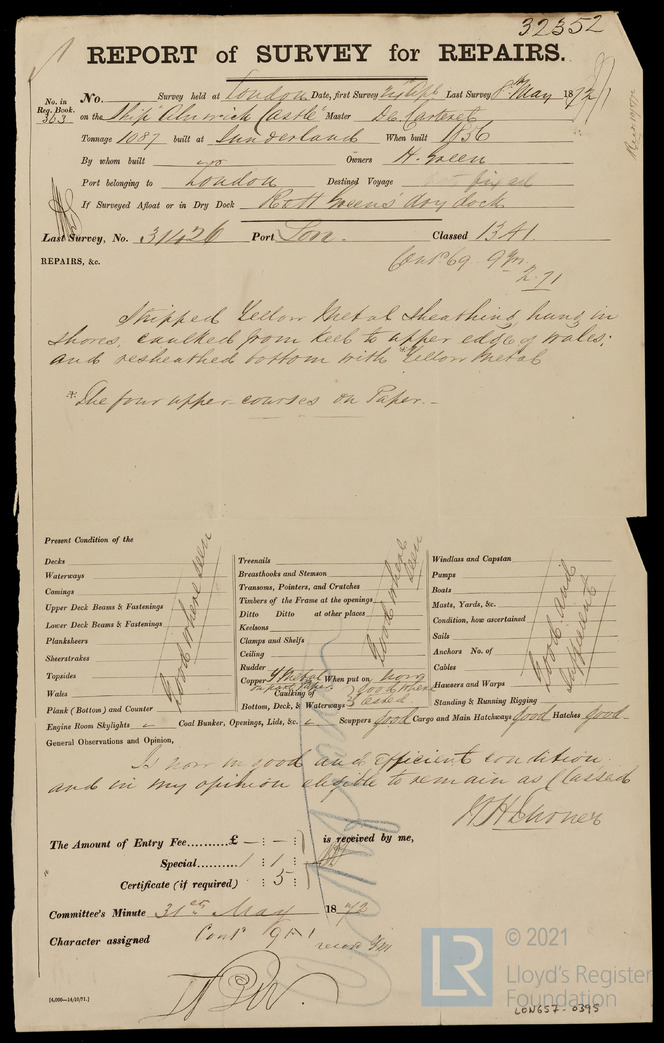 32352
REPORT of SURVEY for REPAIRS.
No. in Reg. Book. 363
No. Survey held at London Date, first Survey Last Survey 8th May 1872
on the Ship "Alnwick Castle" Master De Carteret
Tonnage 1087 built at Sunderland When built 1856
By whom built Owners H. Green
Port belonging to London Destined Voyage
If Surveyed Afloat or in Dry Dock R & H Greens' dry dock
Last Survey, No. 31426 Port Lon. Classed 13A1.
Contd 69. 9 Yrs
2.71
REPAIRS, &c.
Stripped Yellow Metal sheathing hung in
shores, caulked from Keel to upper edge of wales;
and resheathed bottom with *Yellow Metal
* The four upper courses on Paper.
Present Condition of the
Decks
Waterways
Comings
Upper Deck Beams & Fastenings
Lower Deck Beams & Fastenings
Planksheers
Sheerstrakes
Topsides
Wales
Plank (Bottom) and Counter
Good where seen
Treenails
Breasthooks and Stemson
Transoms, Pointers, and Crutches
Timbers of the Frame at the openings
Ditto Ditto at other places
Keelsons
Clamps and Shelfs
Ceiling
Rudder
Good where seen
Copper Y Metal When put on now
on part Paper
Caulking of Bottom, Deck, & Waterways good where tested
Windlass and Capstan
Pumps
Boats
Masts, Yards, &c.
Condition, how ascertained
Sails
Anchors No. of
Cables
Hawsers and Warps
Standing & Running Rigging
Good and sufficient
Engine Room Skylights Coal Bunker, Openings, Lids, &c. Scuppers good Cargo and Main Hatchways good Hatches good
General Observations and Opinion,
Is now in good and efficient condition
and in my opinion eligible to remain as Classed
The Amount of Entry Fee.......... £ - : - is received by me,
Special.......... 1 : 1 :
Certificate (if required) : 5 :
Committee's Minute 31st May 1872
Character assigned Contd
[4,000—14/10/71.]
LR
© 2021
Lloyd's Register
Foundation
LON657-0395